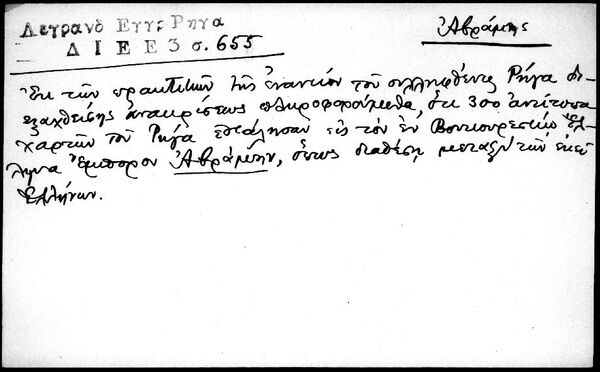 Λεγρανδ Εγγρ Ρηγα
Δ Ι Ε Ε 3 σ. 655
Ἀβράμης
Ἐκ τῶν πρακτικῶν τῆς ἐναντίον τοῦ συλληφθέντος Ρήγα δι-
εξαχθείσης ἀνακρίσεως πληροφορούμεθα, ὅτι 300 ἀντίτυπα
χαρτῶν τοῦ Ρήγα ἐστάλησαν εἰς τὸν ἐν Βουκουρεστίῳ Ἕλ-
ληνα ἔμπορον Ἀβράμην, ὅπως διαθέσῃ μεταξὺ τῶν ἐκεῖ
Ἑλλήνων.